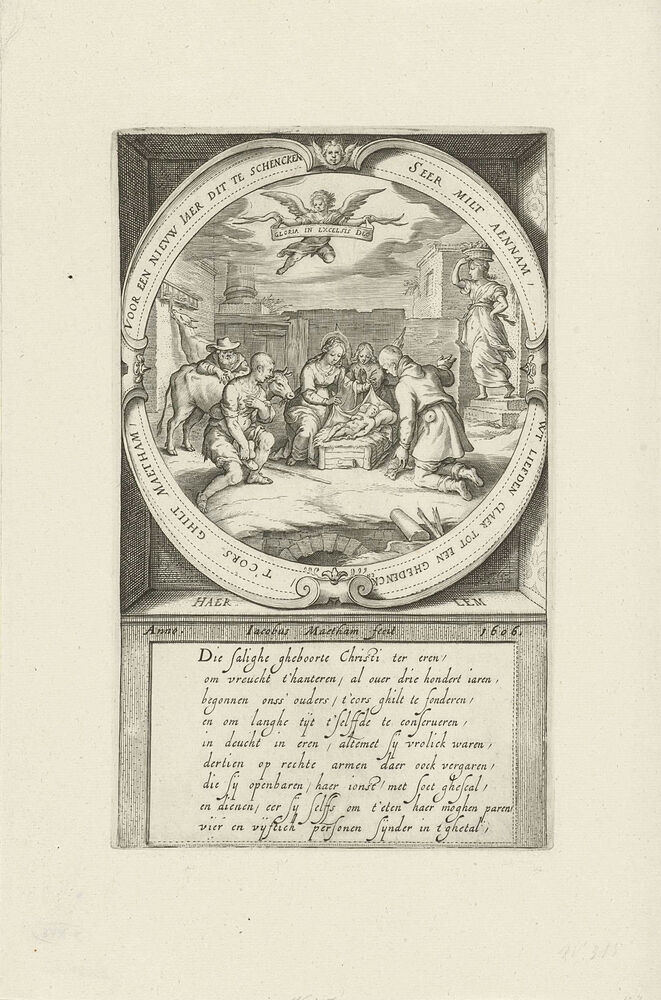 VOOR EEN NIEUW IAER DIT TE SCHENCKEN
SEER MILT AENNAM,
WT LIEFDEN CLAER TOT EEN GHEDENCKEN
T'CORS GHILT MAETHAM,
GLORIA IN EXCELSIS DEO
HAER LEM
Anno. Iacobus Maetham fecit 1606.
Die salighe gheboorte Christi ter eren,
om vreucht t'hanteren, al ouer drie hondert iaren,
begonnen onss' ouders, t'cors ghilt te fonderen,
en om langhe tijt t'selffde te conserueren,
in deucht in eren, altemet sij vrolick waren,
dertien op rechte armen daer oock vergaren,
die sij openbaren, haer ionste, met soet gheschal,
en dienen, eer sij selfs om t'eten haer moghen paren
vier en vijftich personen sijnder in t'ghetal,